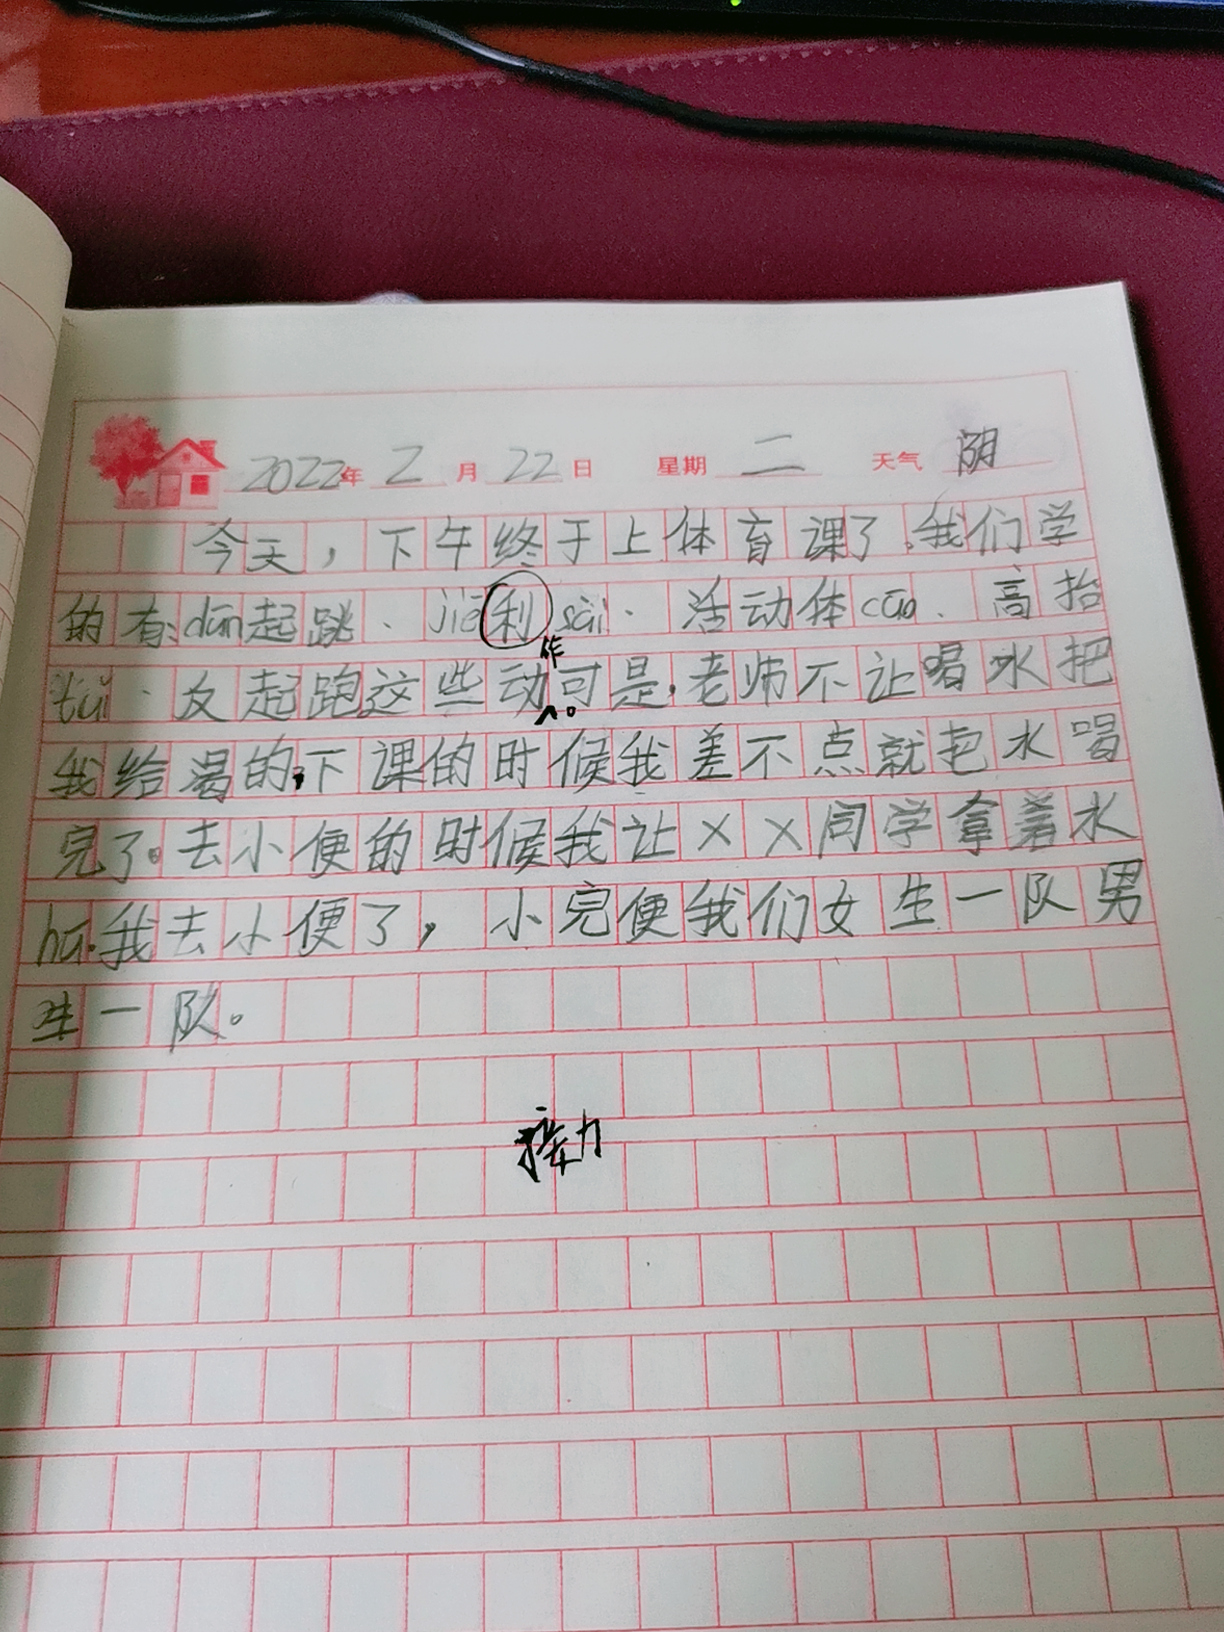 2022年2月22日 星期二 天气阴
今天，下午终于上体育课了。我们学
的有：dūn起跳、jiē利sài、活动体cāo、高抬
tuǐ、反起跑这些动作。可是，老师不让喝水把
我给渴的，下课的时候我差不点就把水喝
完了。去小便的时候我让××同学拿着水
hú。我去小便了，小完便我们女生一队男
生一队。
接力